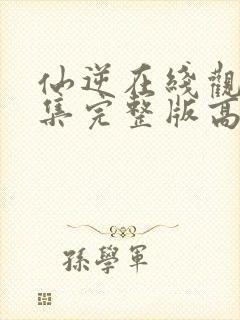 仙逆在綫觀
集完整版高
孫學軍